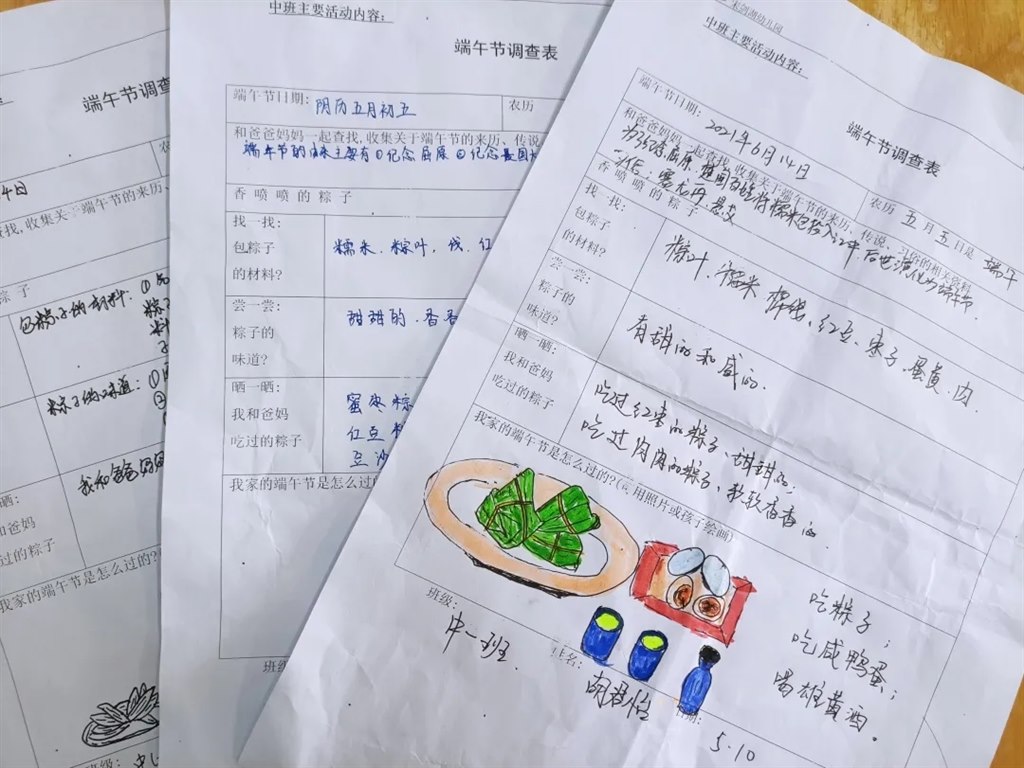 端午节调查
4日
查找,收集关于端午节的来历、
粽子
包粽子的材料:①
粽子的味道:①
②
我和爸爸妈妈
晒:
和爸妈
过的粽子
我家的端午节是怎么过的?
班级:
中班主要活动内容:
端午节调查表
端午节日期:阴历五月初五
农历
和爸爸妈妈一起查找,收集关于端午节的来历、传说
端午节的由来主要有①纪念屈原②纪念
香喷喷的粽子
找一找:
包粽子
的材料?
糯米.粽叶.线.红
尝一尝:
粽子的
味道?
甜甜的.香香
晒一晒:
我和爸妈
吃过的粽子
蜜枣粽
红豆
豆沙
我家的端午节是怎么过的
班级
幼儿园
中班主要活动内容:
端午节调查表
端午节日期:2021年6月14日
农历 五月五日是 端午
和爸爸妈妈一起查找,收集关于端午节的来历、传说、习俗的相关资料
为纪念屈原,
香喷喷的粽子
找一找:
包粽子
的材料?
粽叶、糯米、棉线、红豆、枣子、蛋黄、肉.
尝一尝:
粽子的
味道?
有甜的和咸的.
晒一晒:
我和爸妈
吃过的粽子
吃过红枣的粽子、甜甜的;
吃过肉肉的粽子、软软香香的.
我家的端午节是怎么过的?(可用照片或孩子绘画)
吃粽子;
吃咸鸭蛋;
喝雄黄酒。
班级:
中一班.
姓名:
胡君怡
日期:
5.10